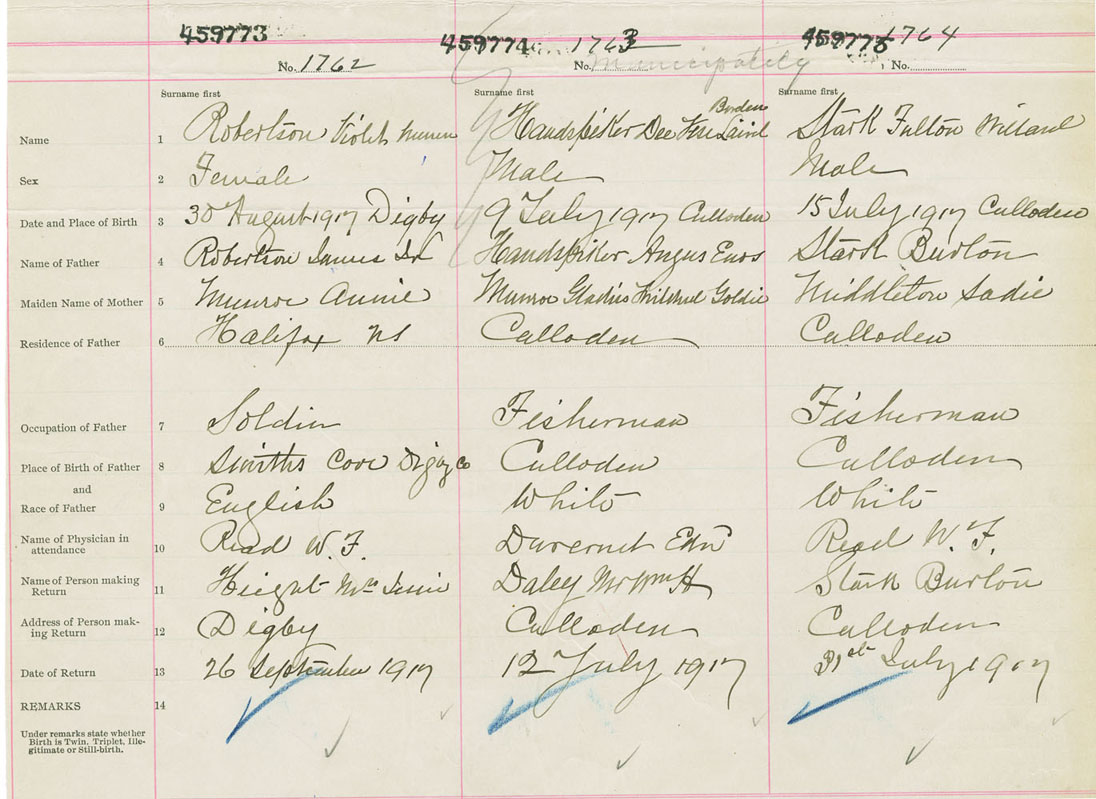 459773 459774 1763 459775 1764
No. 1762 No. Municipality No.
Surname first Surname first Surname first
Borden
Name 1 Robertson Violet Handspiker Dee Laird Stark Fulton Willard
Sex 2 Female Male Male
Date and Place of Birth 3 30 August 1917 Digby 9 July 1917 Culloden 15 July 1917 Culloden
Name of Father 4 Robertson James Handspiker Angus Enos Stark Burton
Maiden Name of Mother 5 Munroe Annie Munroe Gladius Mildred Goldie Middleton Sadie
Residence of Father 6 Halifax NS Culloden Culloden
Occupation of Father 7 Soldier Fisherman Fisherman
Place of Birth of Father 8 Smiths Cove Digby Co Culloden Culloden
and
Race of Father 9 English White White
Name of Physician in
attendance 10 Read W. F. Duvernet Edn Read W. F.
Name of Person making
Return 11 Height Mrs Daley Stark Burton
Address of Person mak-
ing Return 12 Digby Culloden Culloden
Date of Return 13 26 September 1917 12 July 1917 31st July 1917
REMARKS 14
Under remarks state whether
Birth is Twin, Triplet, Ille-
gitimate or Still-birth.